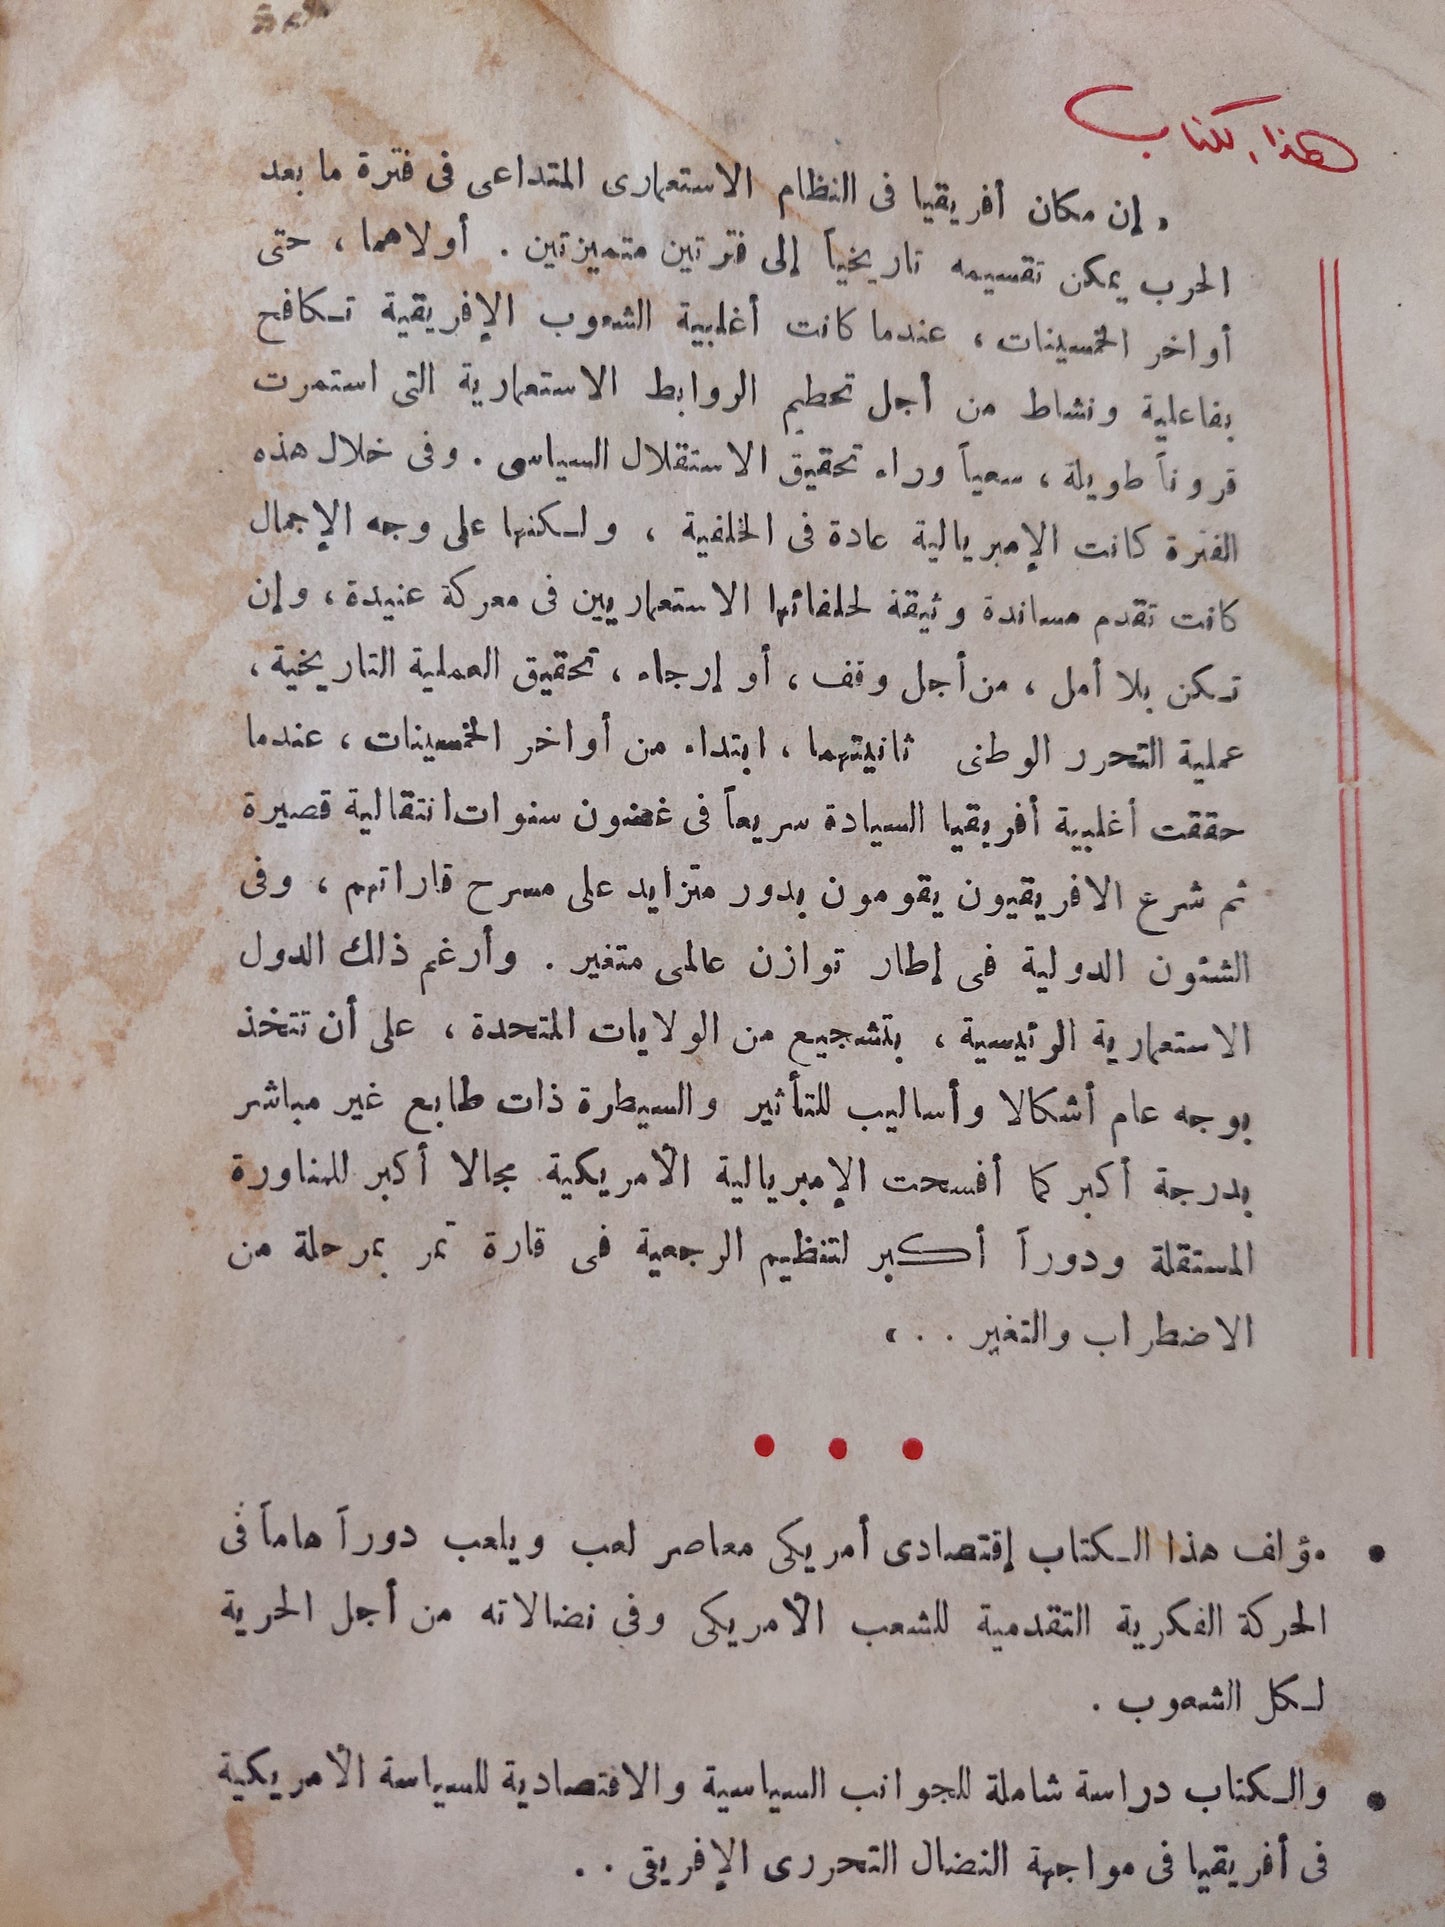 هذا الكتاب
« إن مكان أفريقيا فى النظام الاستعمارى المتداعى فى فترة ما بعد
الحرب يمكن تقسيمه تاريخياً إلى فترتين متميزتين . أولاهما ، حتى
أواخر الخمسينات ، عندما كانت أغلبية الشعوب الإفريقية تكافح
بفاعلية ونشاط من أجل تحطيم الروابط الاستعمارية التى استمرت
قروناً طويلة ، سعياً وراء تحقيق الاستقلال السياسى . وفى خلال هذه
الفترة كانت الإمبريالية عادة فى الخلفية ، ولكنها على وجه الإجمال
كانت تقدم مساندة وثيقة لحلفائها الاستعماريين فى معركة عنيدة ، وإن
تكن بلا أمل ، من أجل وقف ، أو إرجاء ، تحقيق العملية التاريخية ،
عملية التحرر الوطنى ثانيتهما ، ابتداء من أواخر الخمسينات ، عندما
حققت أغلبية أفريقيا السيادة سريعاً فى غضون سنوات انتقالية قصيرة
ثم شرع الافريقيون يقومون بدور متزايد على مسرح قاراتهم ، وفى
الشئون الدولية فى إطار توازن عالمى متغير . وأرغم ذلك الدول
الاستعمارية الرئيسية ، بتشجيع من الولايات المتحدة ، على أن تتخذ
بوجه عام أشكالا وأساليب للتأثير والسيطرة ذات طابع غير مباشر
بدرجة أكبر كما أفسحت الإمبريالية الأمريكية مجالا أكبر للمناورة
المستقلة ودوراً أكبر لتنظيم الرجعية فى قارة تمر بمرحلة من
الاضطراب والتغير . . »
• • •
• مؤلف هذا الكتاب إقتصادى أمريكى معاصر لعب ويلعب دوراً هاماً فى
الحركة الفكرية التقدمية للشعب الأمريكى وفى نضالاته من أجل الحرية
لكل الشعوب .
• والكتاب دراسة شاملة للجوانب السياسية والاقتصادية للسياسة الأمريكية
فى أفريقيا فى مواجهة النضال التحررى الإفريقى . .